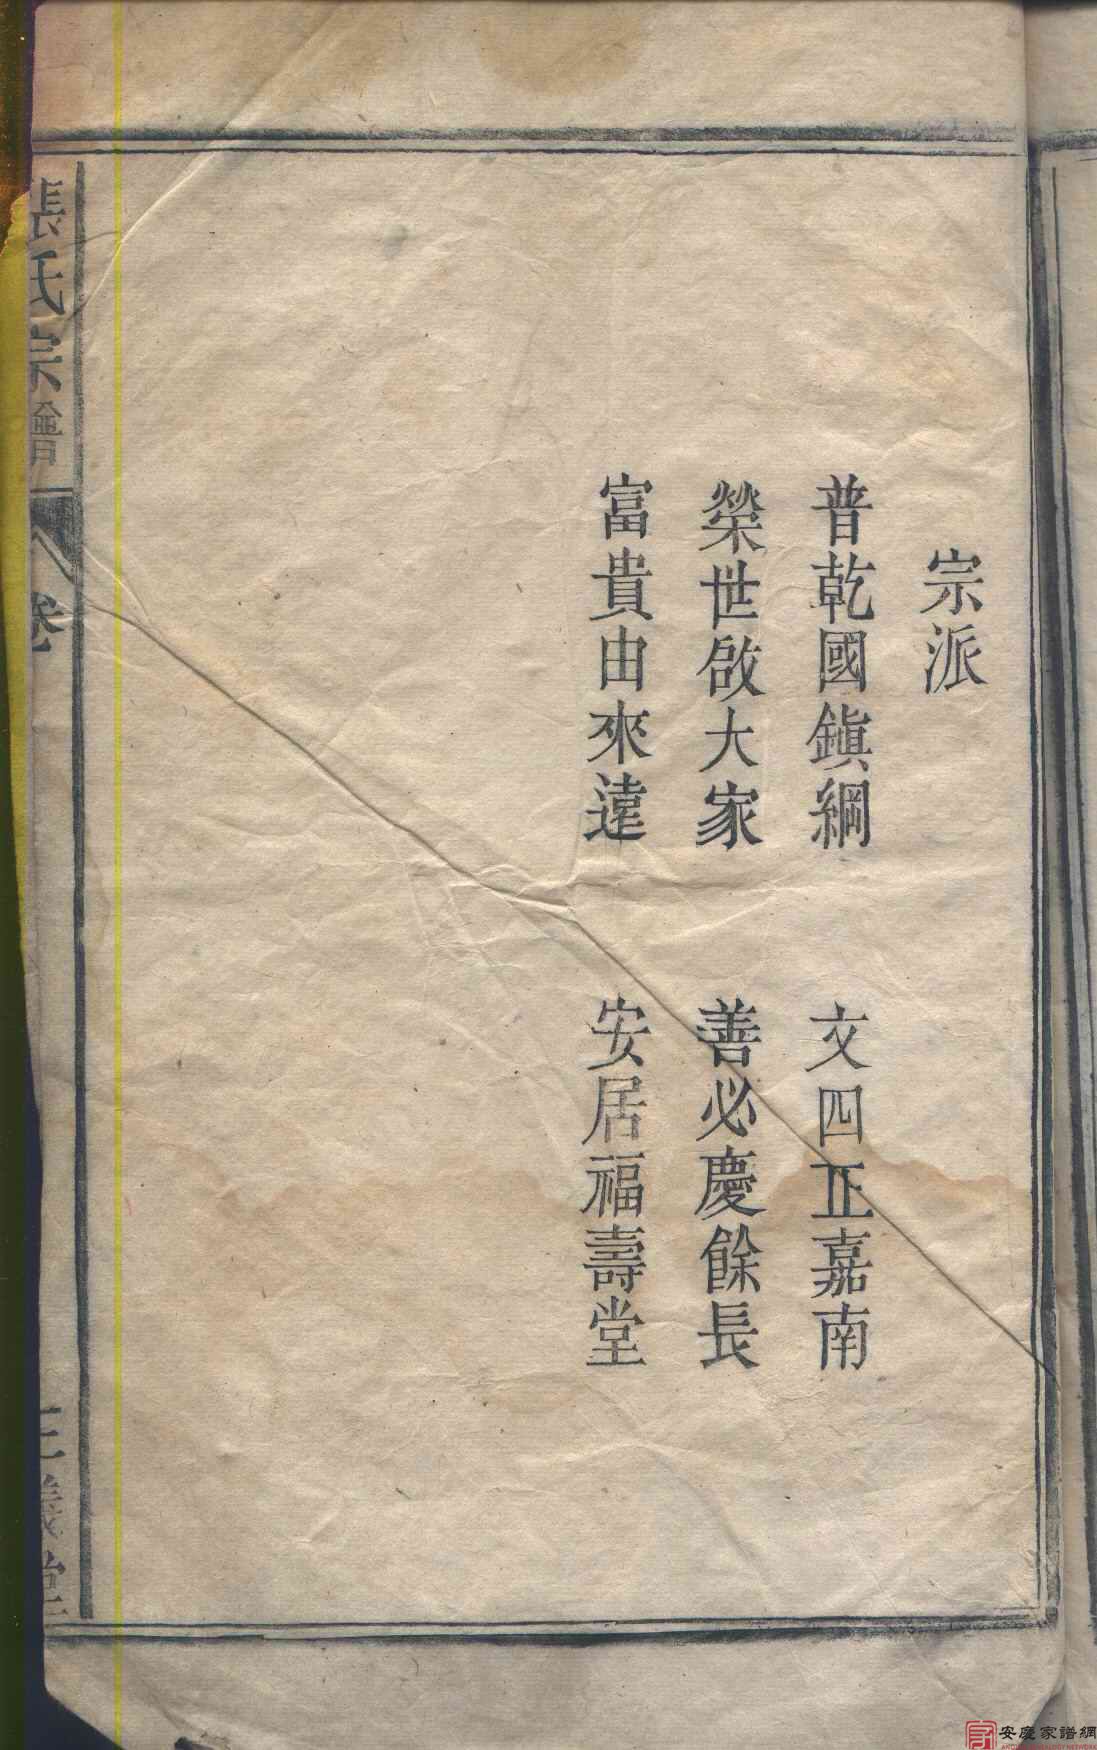 宗派
普乾國鎮綱　文四正嘉南
榮世啟大家　善必慶餘長
富貴由來遠　安居福壽堂
張氏宗譜　卷　義堂
安慶家譜網